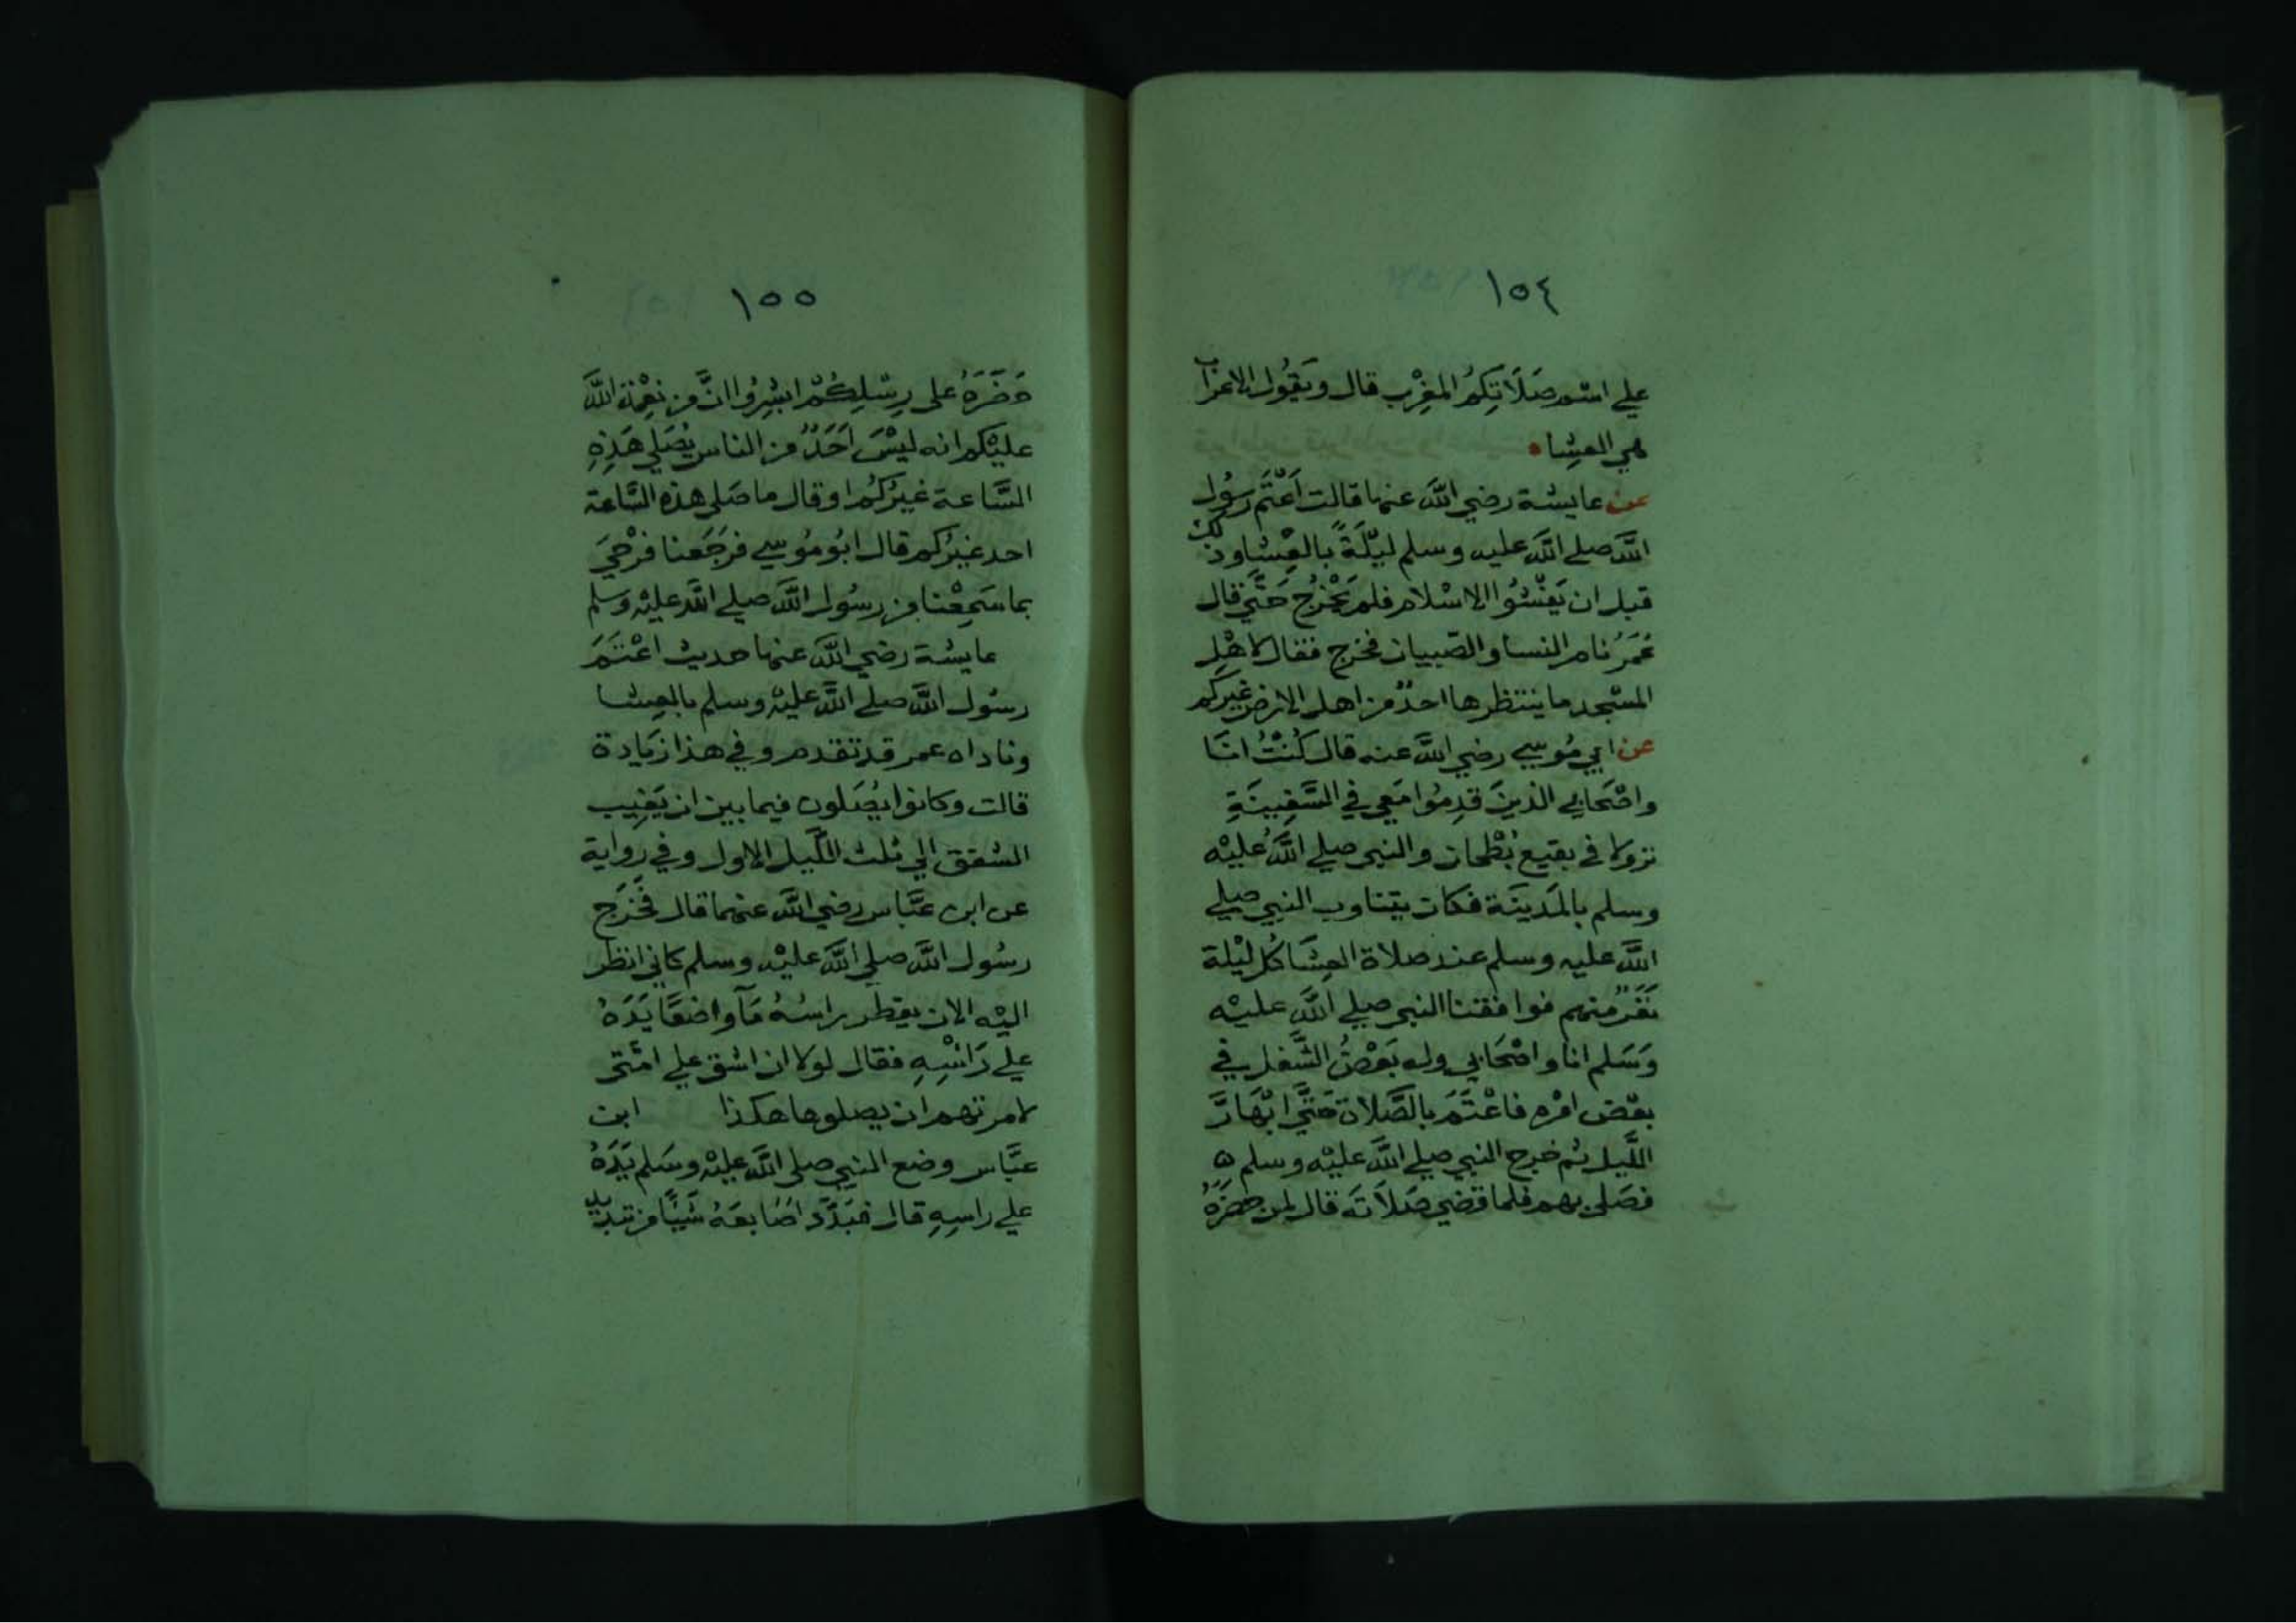 ١٥٤
علي اسم صَلَاتِكُم المغْرِب قال ويَقُول الاعراب
هي العِشاء
عن عايشة رضي الله عنها قالت اَعْتَم رَسُول
الله صلي الله عليه وسلم ليْلَةً بالعِشا وذلك
قبل ان يَفْشُوا الاسْلام فلم يَخْرُج حَتَّي قال
عُمَرُ نام النسا والصّبيان فخرج فقال لاهْلِ
المسْجد ما ينتظرها احدٌ من اهل الارض غيركم
عن ابي مُوسي رضي الله عنه قال كُنْتُ انَا
واصْحَابي الذينَ قدِمُوا مَعي في السَّفِينَةِ
نزولا في بقيع بُطْحان والنبي صلي اللهُ عليْه
وسلم بالمَدينَة فكان يتناوب النبي صلي
الله عليه وسلم عند صلاة العِشَا كُل ليْلة
نَفَرٌ منهم فوافقنا النبي صلي الله عليْه
وَسَلم انا واصْحَابي وله بَعْضُ الشُّغل في
بعْض امْره فاعْتَمَ بالصَّلاة حَتَّي ابْهَارَّ
اللَّيل ثم خرج النبي صلي الله عليْه وسلم
فصَلي بهم فلما قضي صَلَاتَه قال لمن حضَرَهُ
١٥٥
حَضَرَهُ علي رِسْلِكُمْ ابشِرُوا انَّ من نِعْمَة الله
عليْكم انه ليْسَ اَحَدٌ من الناس يُصَلي هَذِهِ
السَّاعة غيْرُكُم او قال ما صَلي هذه السَّاعة
احد غيْرُكم قال ابُو مُوسي فرجَعنا فرْحيَ
بما سَمِعْنا من رسُول الله صلي الله عليْه وسلم
عايشة رضي الله عنها حديث اعْتَمَ
رسُول الله صلي الله عليْه وسلم بالعِشا
وناداه عمر قد تقدم وفي هذا زيَادة
قالت وكانوا يُصَلون فيما بين ان يَغِيب
الشفق الي ثلث اللَّيل الاول وفي رواية
عن ابن عبَّاس رضي الله عنهما قال فخَرَج
رسُول الله صلي الله عليْه وسلم كاني انظر
اليْه الان يقطر راسُهُ مَآ واضعًا يَدَهُ
علي رَاسْهِ فقال لولا ان اشق علي امتي
لامرتهم ان يصلوها هكذا ابن
عبَّاس وضع النبي صلي الله عليْه وسَلم يَدَهُ
علي راسِهِ قال فبَدَّد اصَابعَهُ شَيْئًا من تبديد